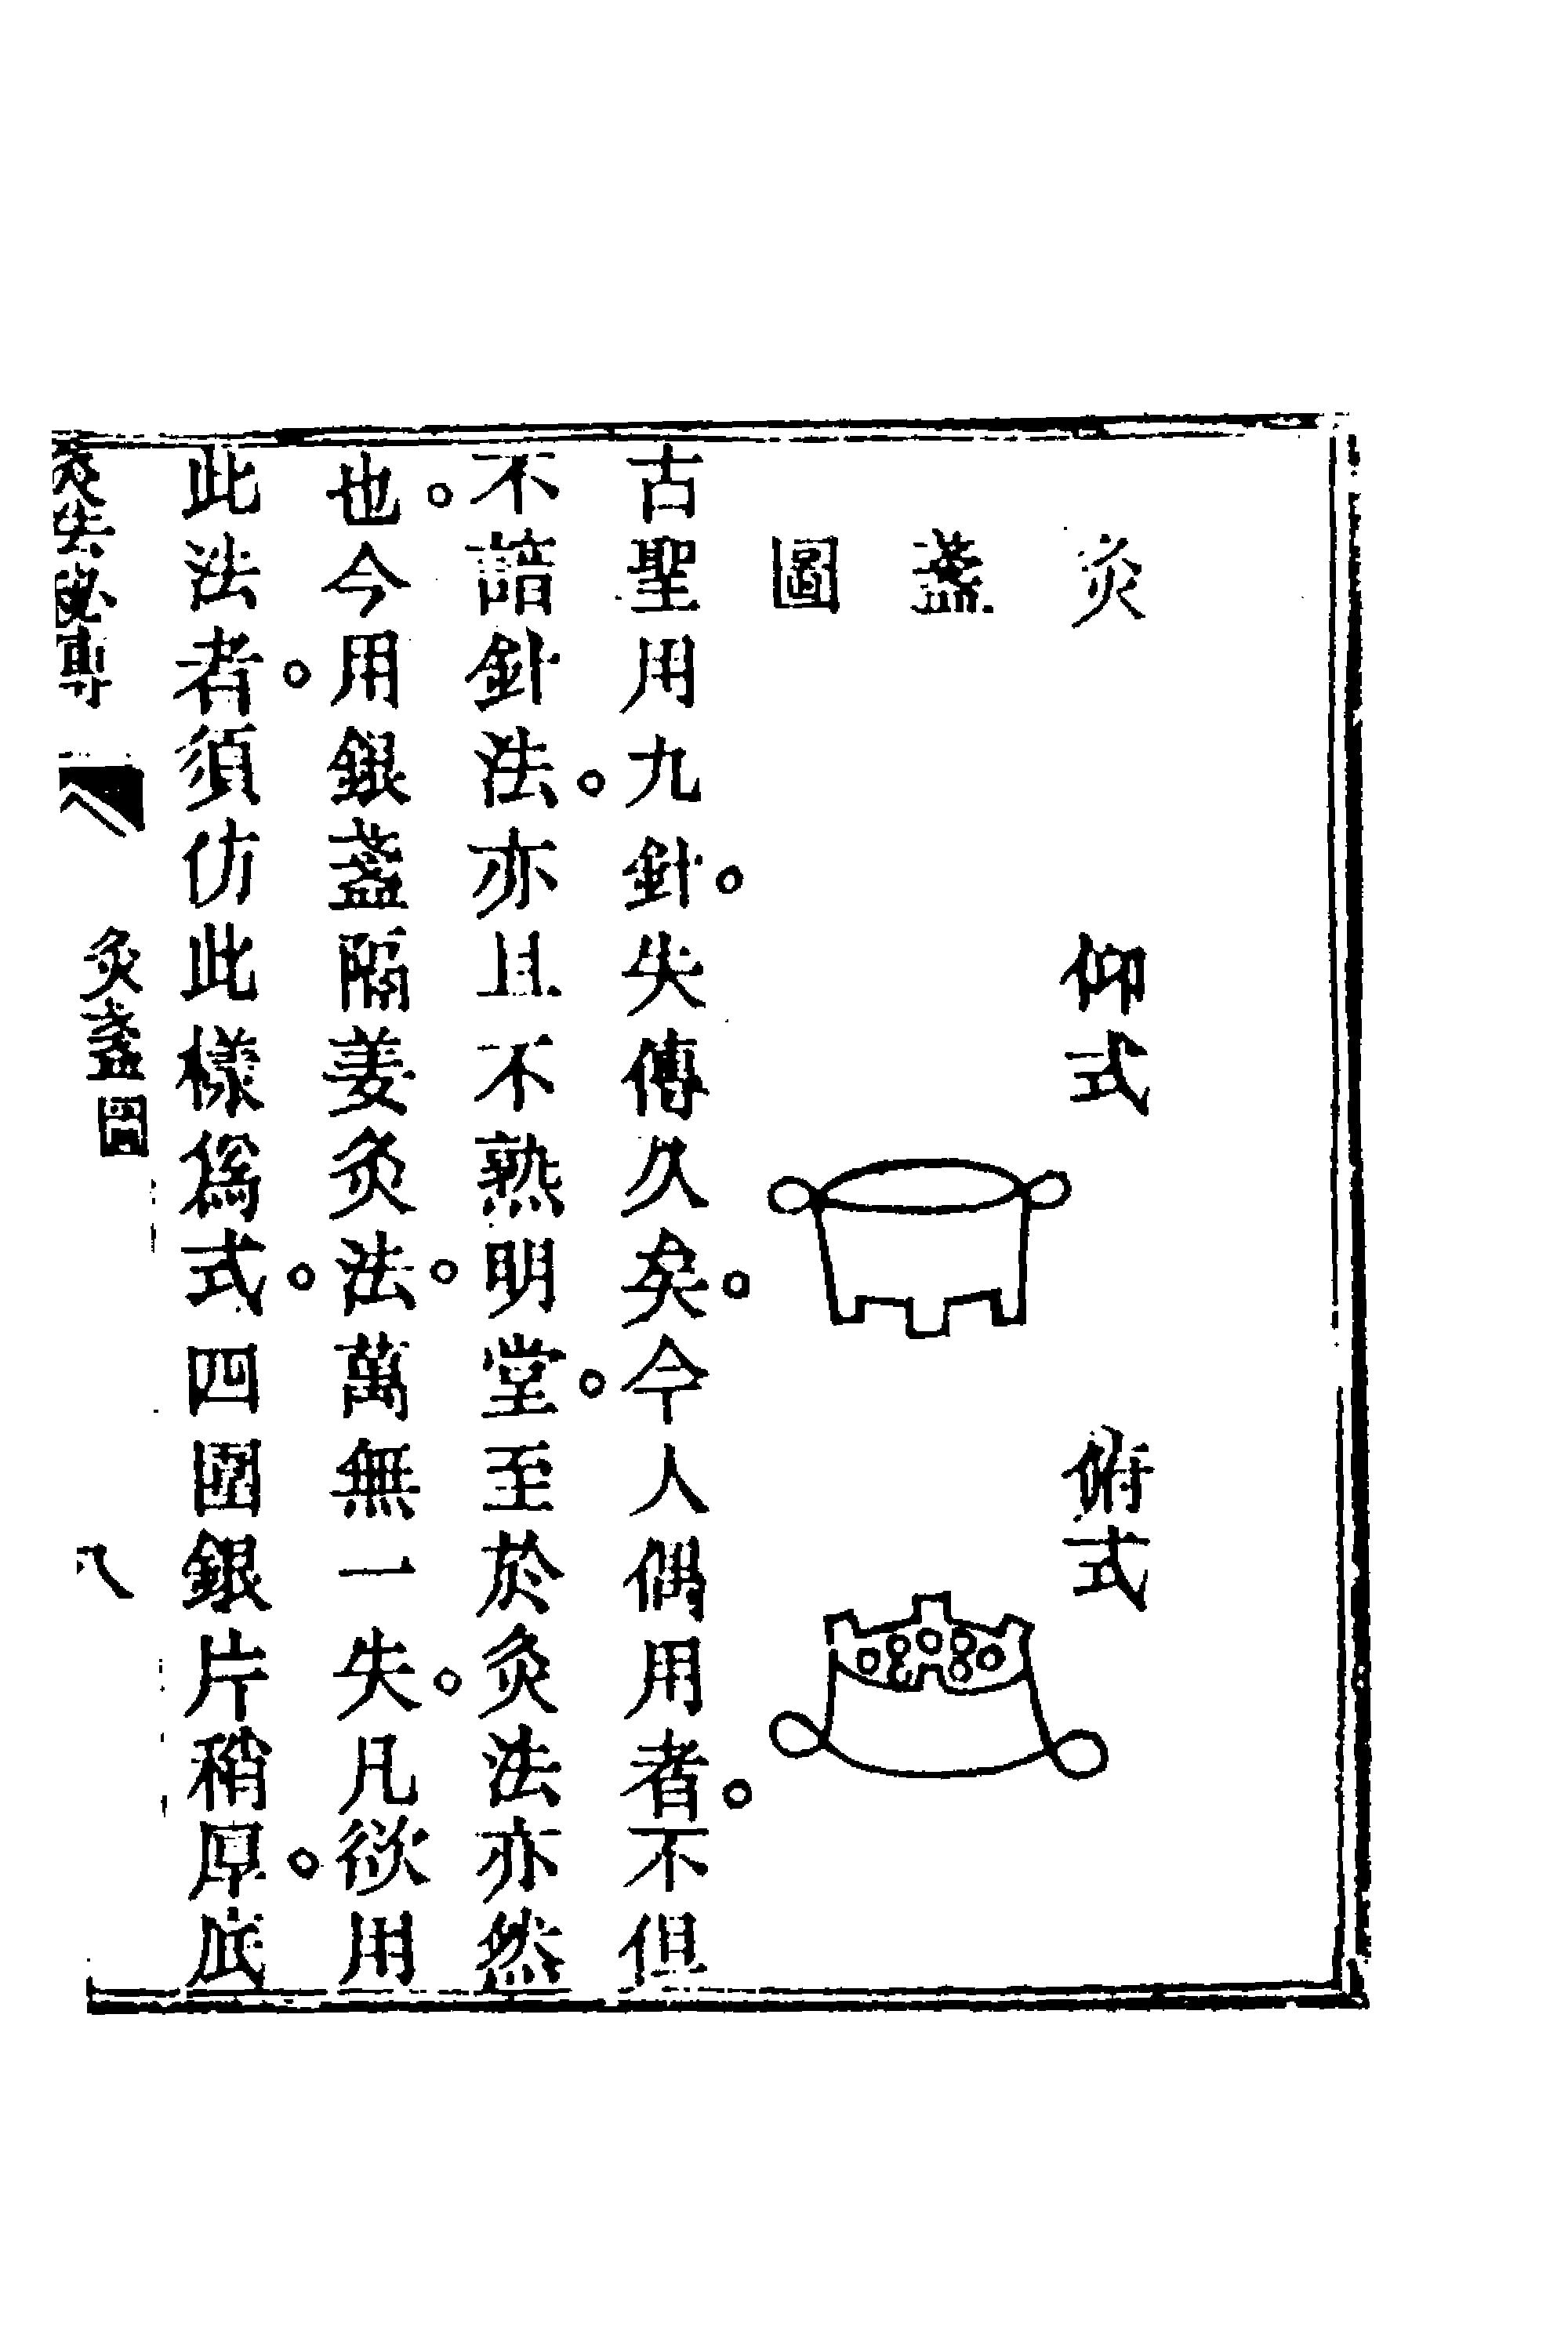 灸
盞
圖
仰式
俯式
古聖用九針。失傳久矣。今人偶用者。不但
不諳針法。亦且不熟明堂。至於灸法亦然
也。今用銀盞隔姜灸法。萬無一失。凡欲用
此法者。須仿此樣爲式。四圍銀片稍厚。底
灸法秘專
灸盞圖
八